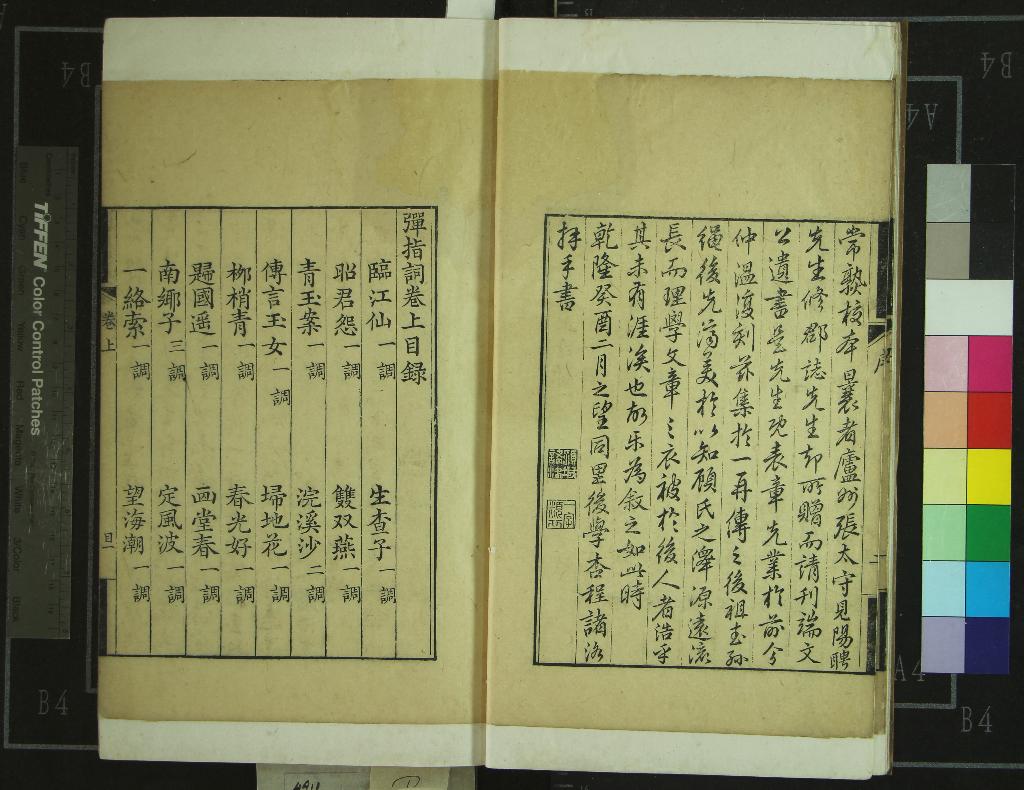 常熟校本曩者廬州張太守見陽聘
先生修郡誌先生却所贈而請刊端文
公遺書是先生既表章先業於前今
仲溫復刻茲集於一再傳之後祖武孫
繩後先濟美於以知顧氏之澤源遠流
長而理學文章之衣被於後人者浩乎
其未有涯涘也故樂為敘之如此時
乾隆癸酉二月之望同里後學杏程諸洛
拜手書
序
彈指詞卷上目錄
臨江仙一調 生查子一調
昭君怨一調 雙双燕一調
青玉案一調 浣溪沙二調
傳言玉女一調 埽地花一調
柳梢青一調 春光好一調
歸國遥一調 画堂春一調
南鄉子三調 定風波一調
一絡索一調 望海潮一調
卷上
目一
TIFFEN Color Control Patches
B4
B4
A4
A4
B4
B4